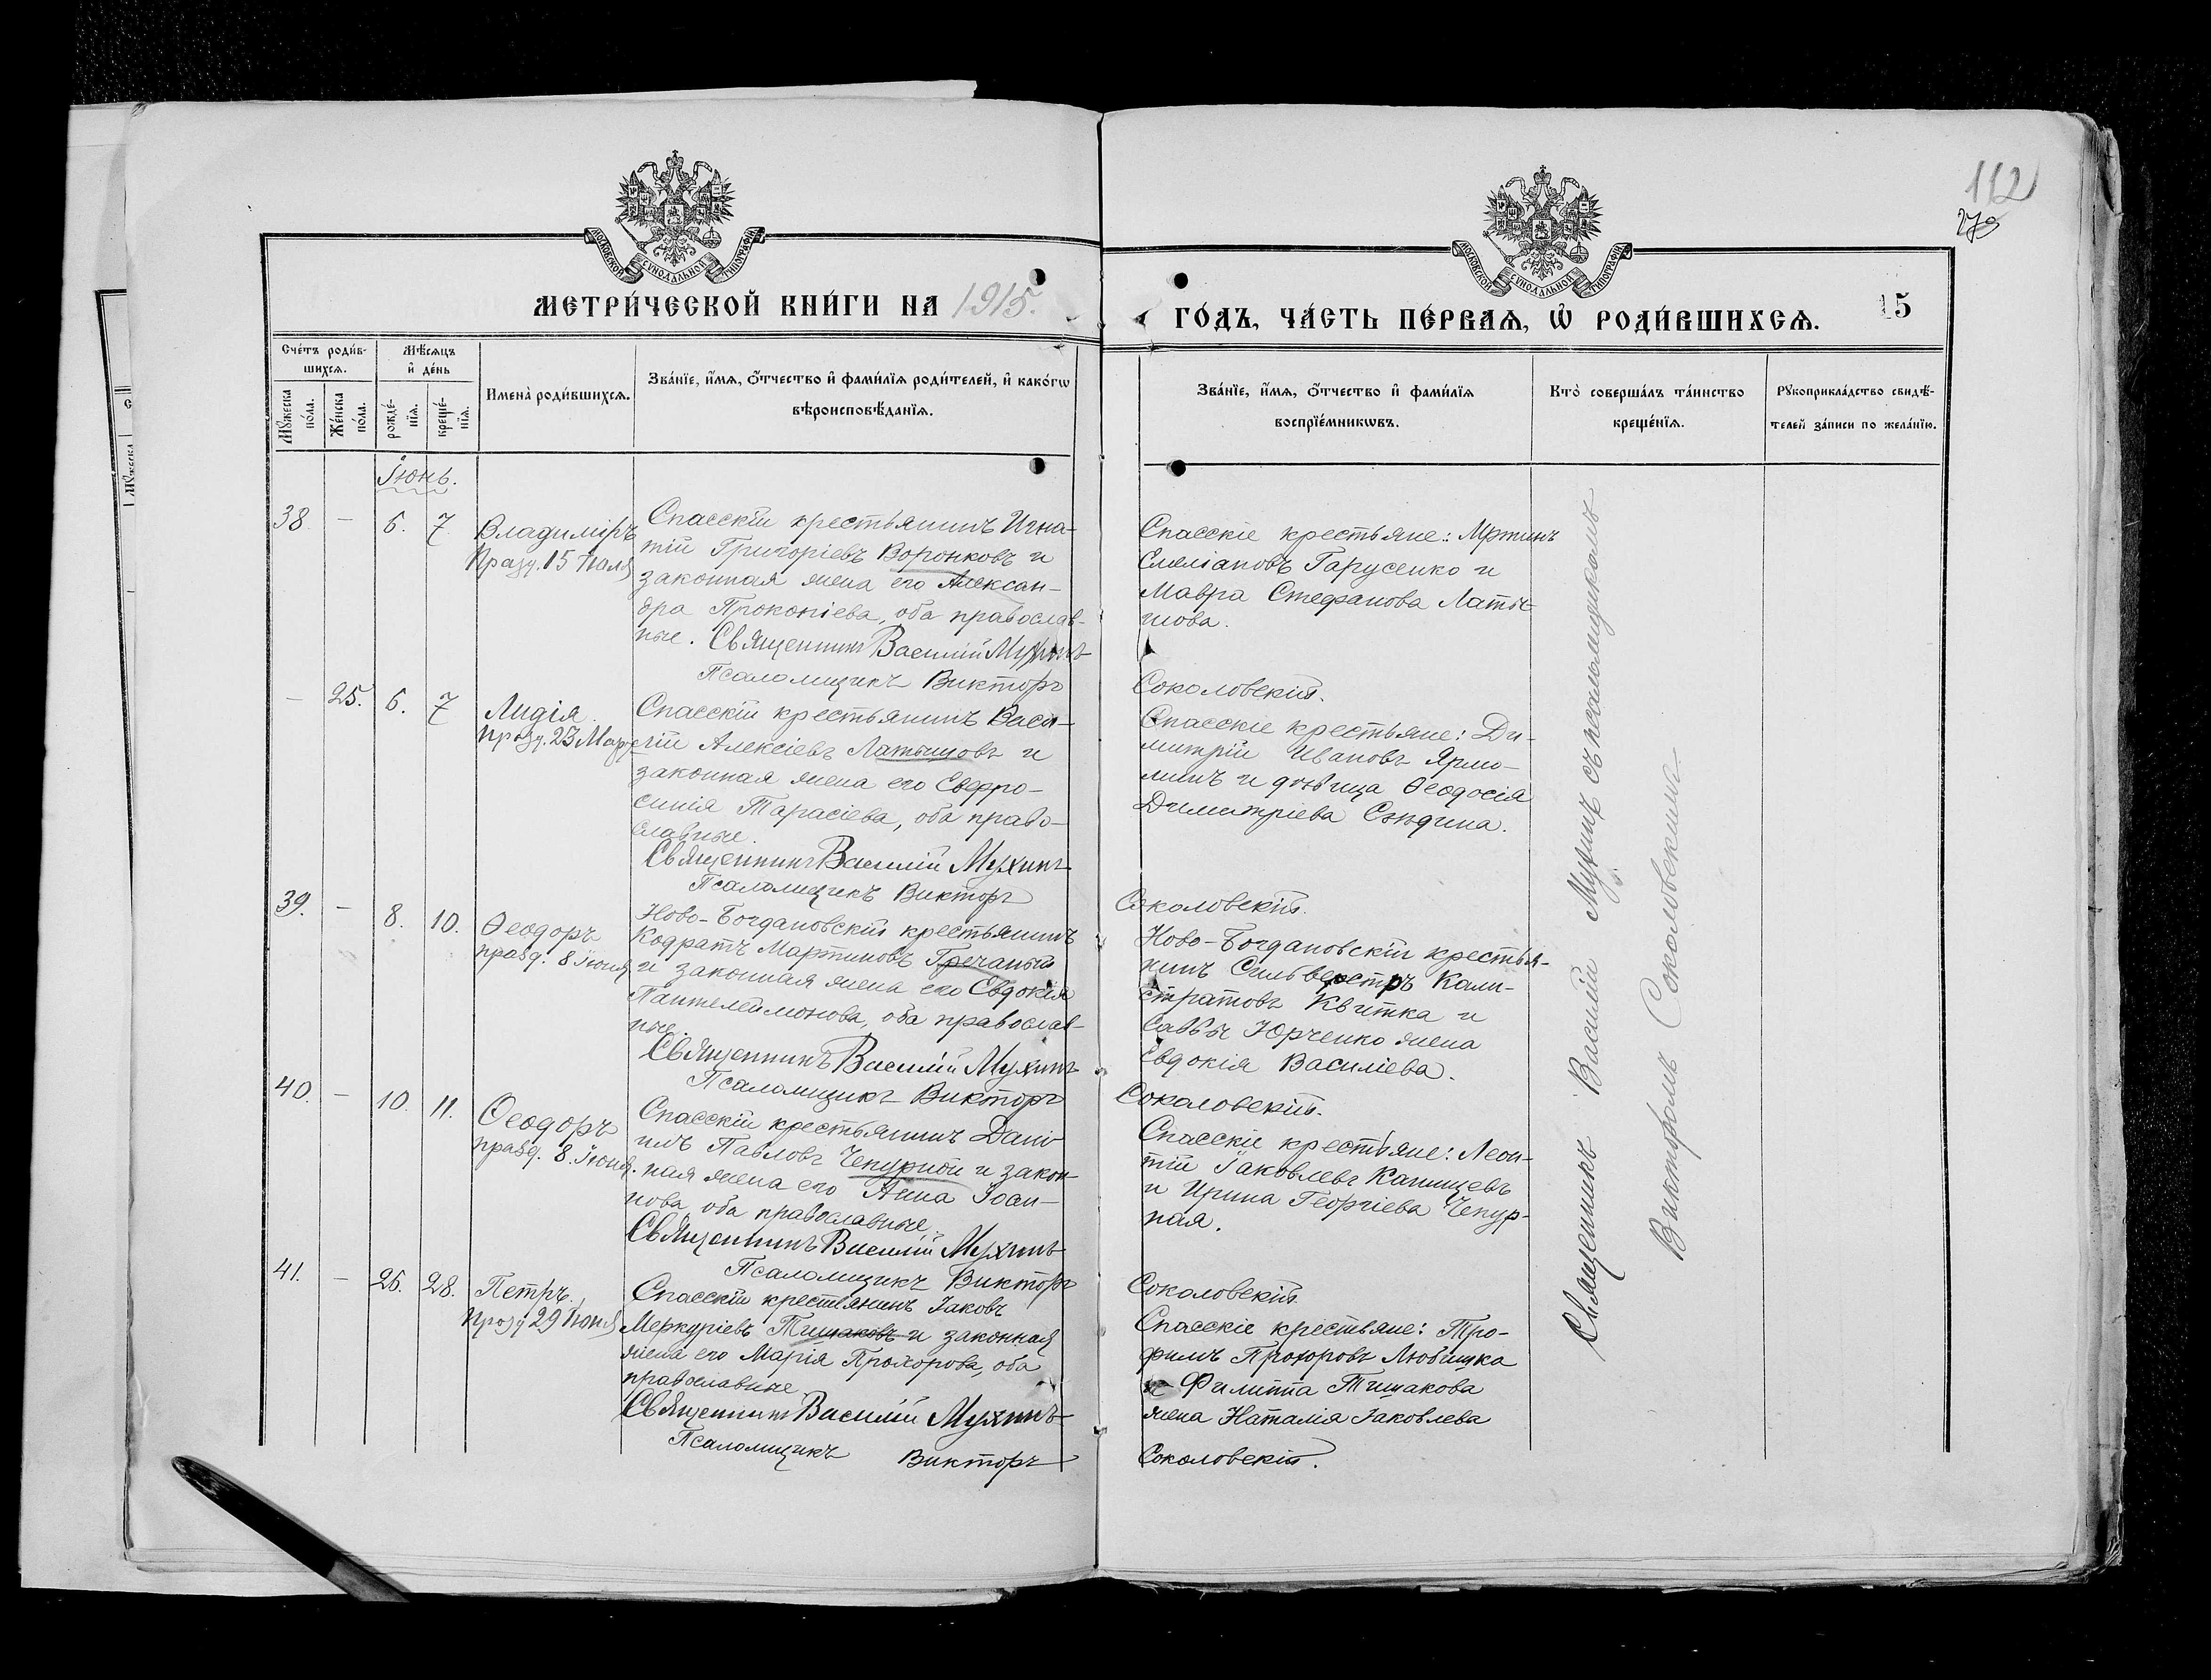 112
279
МОСКОВСКОЙ СѴНОДАЛЬНОЙ ТИПОГРАФІИ
МОСКОВСКОЙ СѴНОДАЛЬНОЙ ТИПОГРАФІИ
МЕТРИ́ЧЕСКОЙ КНИ́ГИ НА 1915.
ГО́ДЪ, ЧА́СТЬ ПЕ́РВАѦ, Ѡ҆ РОДИ́ВШИХСѦ.
15
Сче́тъ роди́в-
шихсѧ.
Мꙋ́жеска по́ла.
Же́нска по́ла.
Мѣ́сѧцъ
и҆ де́нь
рожде́-
нїѧ.
креще́-
нїѧ.
Имена̀ роди́вшихсѧ.
Зва́нїе, и҆́мѧ, ѻ҆́тчество и҆ фами́лїѧ роди́телей, и҆ како́гѡ
вѣроисповѣ́данїѧ.
Зва́нїе, и҆́мѧ, ѻ҆́тчество и҆ фами́лїѧ
воспрїе́мникѡвъ.
Кто̀ соверша́лъ та́инство
креще́нїѧ.
Рꙋкоприкла́дство свидѣ́-
телей за́писи по жела́нїю.
Іюнь.
38. – 6. 7.
Владиміръ
Празд. 15 Іюля
Спасскій крестьянинъ Игна-
тій Григоріевъ Воронковъ и
законная жена его Алексан-
дра Прокопіева, оба православ-
ные. Священникъ Василій Мухинъ
Псаломщикъ Викторъ
Спасскіе крестьяне: Мртинъ
Емеліановъ Гарусенко и
Мавра Стефанова Латы-
шова.
Соколовскій.
– 25. 6. 7
Лидія.
Празд. 23 Мар.
Спасскій крестьянинъ Васи-
лій Алексіевъ Латышовъ и
законная жена его Евфро-
синія Тарасіева, оба право-
славные.
Священникъ Василій Мухинъ
Псаломщикъ Викторъ
Спасскіе крестьяне: Ди-
митрій Ивановъ Ярмо-
линъ и дѣвица Ѳеодосія
Димитріева Сѣдина.
Соколовскій.
39. – 8. 10.
Ѳеодоръ
празд. 8 Іюня
Ново-Богдановскій крестьянинъ
Кодратъ Мартиновъ Гречаный
и законная жена его Евдокія
Пантелеимонова, оба православ-
ные.
Священникъ Василій Мухинъ
Псаломщикъ Викторъ
Ново-Богдановскій крестья-
нинъ Сильвестръ Кали-
стратовъ Квитка и
Саввы Юрченко жена
Евдокія Василіева.
Соколовскій.
40. – 10. 11.
Ѳеодоръ
празд. 8. Іюня.
Спасскій крестьянинъ Дані-
илъ Павловъ Чепурной и закон-
ная жена его Анна Іоан-
нова, оба православные.
Священникъ Василій Мухинъ
Псаломщикъ Викторъ
Спасскіе крестьяне: Леон-
тій Іаковлевъ Капищевъ
и Ирина Георгіева Чепур-
ная.
Соколовскій.
41. – 26. 28.
Петръ.
Празд 29 Іюня
Спасскій крестьянинъ Іаковъ
Меркуріевъ Тишаковъ и законная
жена его Марія Прохорова, оба
православные
Священникъ Василій Мухинъ
Псаломщикъ Викторъ
Спасскіе крестьяне: Тро-
фимъ Прохоровъ Любицка
и Филиппа Тишакова
жена Наталія Іаковлева
Соколовскій.
Священникъ Василій Мухинъ съ псаломщикомъ
Викторомъ Соколовскимъ